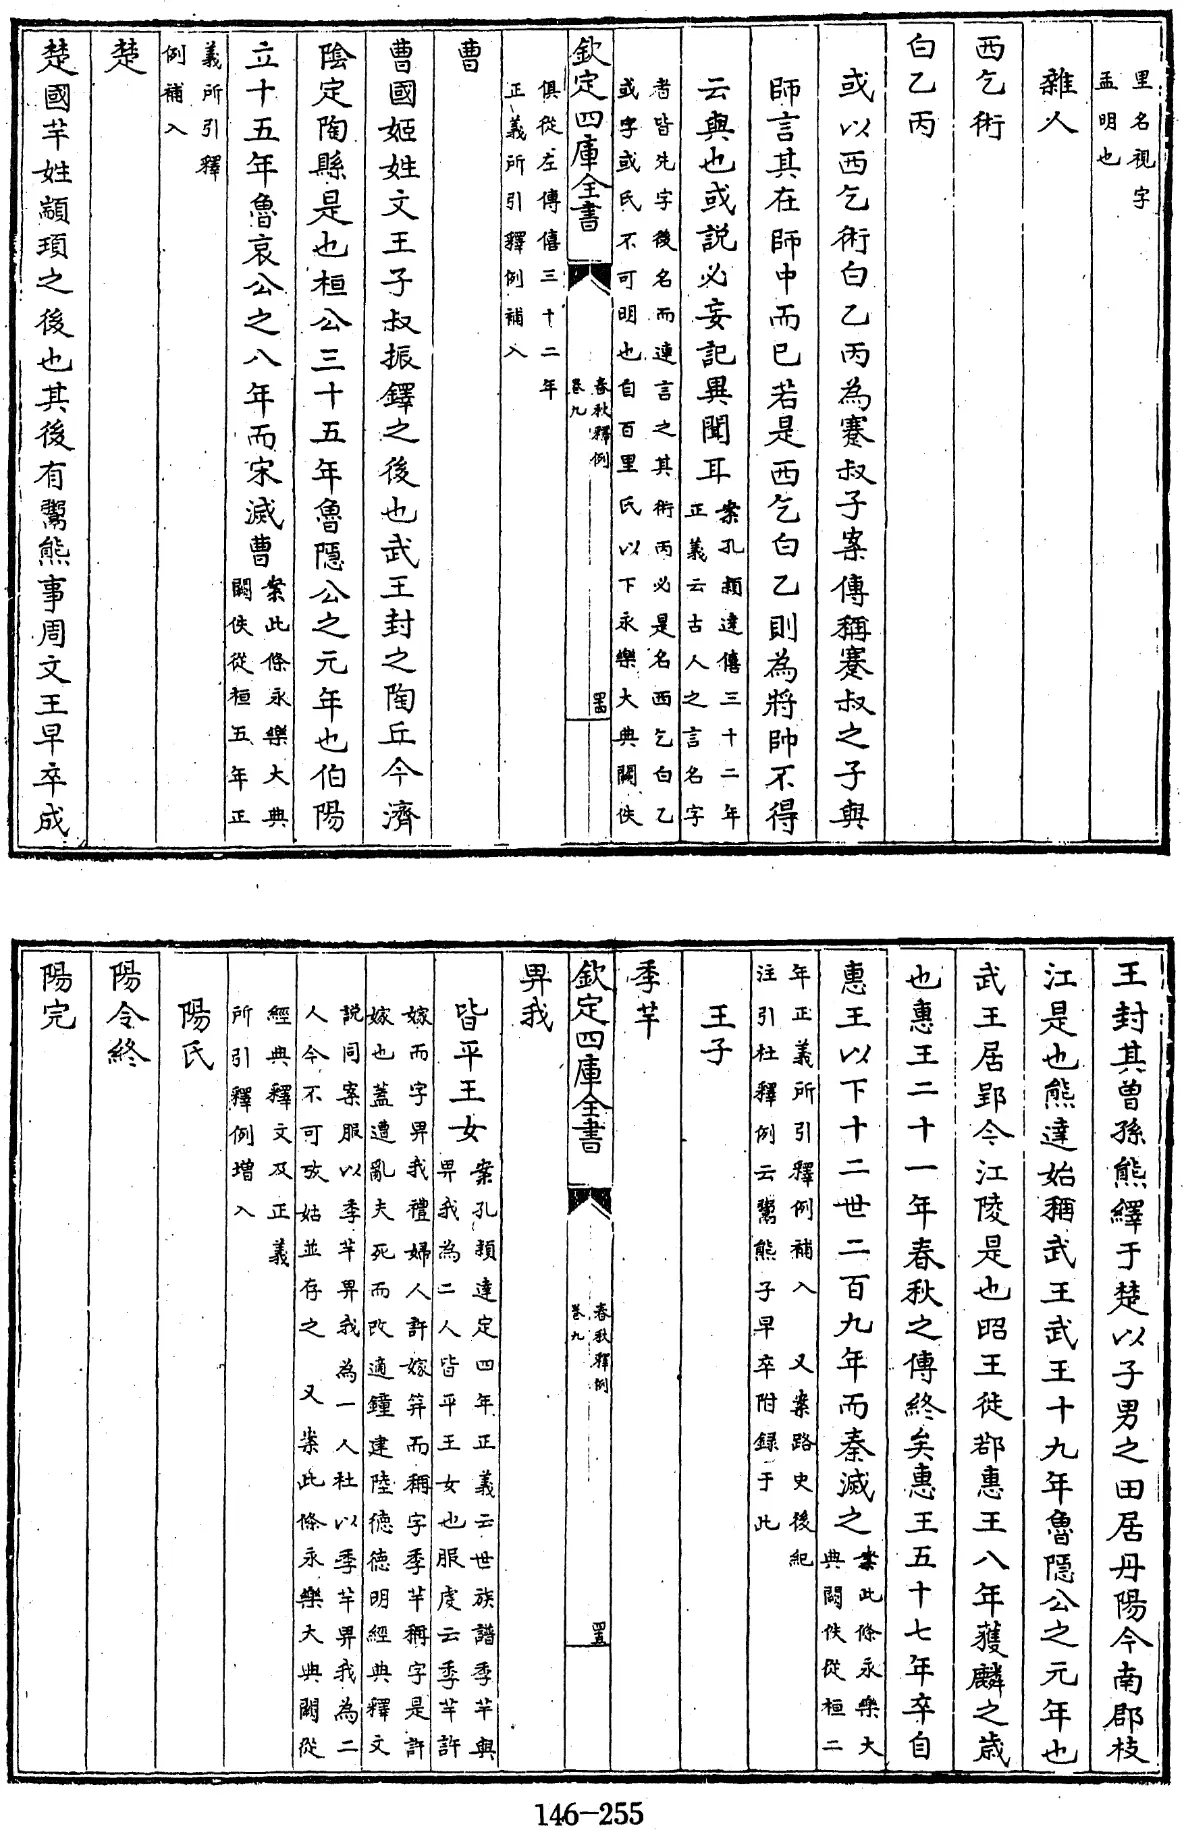 里名視字
孟明也
雜人
西乞術
白乙丙
或以西乞術白乙丙為蹇叔子案傳稱蹇叔之子與
師言其在師中而已若是西乞白乙則為將帥不得
云與也或說必妄記異聞耳案孔穎達僖三十二年
正義云古人之言名字
者皆先字後名而連言之其術丙必是名西乞白乙
或字或氏不可明也自百里氏以下永樂大典闕佚
欽定四庫全書
春秋釋例
卷九
俱從左傳僖三十二年
正義所引釋例補入
曹
曹國姬姓文王子叔振鐸之後也武王封之陶丘今濟
陰定陶縣是也桓公三十五年魯隱公之元年也伯陽
立十五年魯哀公之八年而宋滅曹案此條永樂大典
闕佚從桓五年正
義所引釋
例補入
楚
楚國芈姓顓頊之後也其後有鬻熊事周文王早卒成
王封其曾孫熊繹于楚以子男之田居丹陽今南郡枝
江是也熊達始稱武王武王十九年魯隱公之元年也
武王居郢今江陵是也昭王徙鄀惠王八年獲麟之歲
也惠王二十一年春秋之傳終矣惠王五十七年卒自
惠王以下十二世二百九年而秦滅之案此條永樂大
典闕佚從桓二
年正義所引釋例補入 又案路史後紀
注引杜釋例云鬻熊子早卒附錄于此
王子
季芈
欽定四庫全書
春秋釋例
卷九
畀我
皆平王女案孔穎達定四年正義云世族譜季芈與
畀我為二人皆平王女也服虔云季芈許
嫁而字畀我禮婦人許嫁笄而稱字季芈稱字是許
嫁也蓋遭亂夫死而改適鐘建陸德德明經典釋文
說同案服以季芈畀我為一人杜以季芈畀我為二
人今不可攷姑並存之 又案此條永樂大典闕從
經典釋文及正義
所引釋例增入
陽氏
陽令終
陽完
146-255